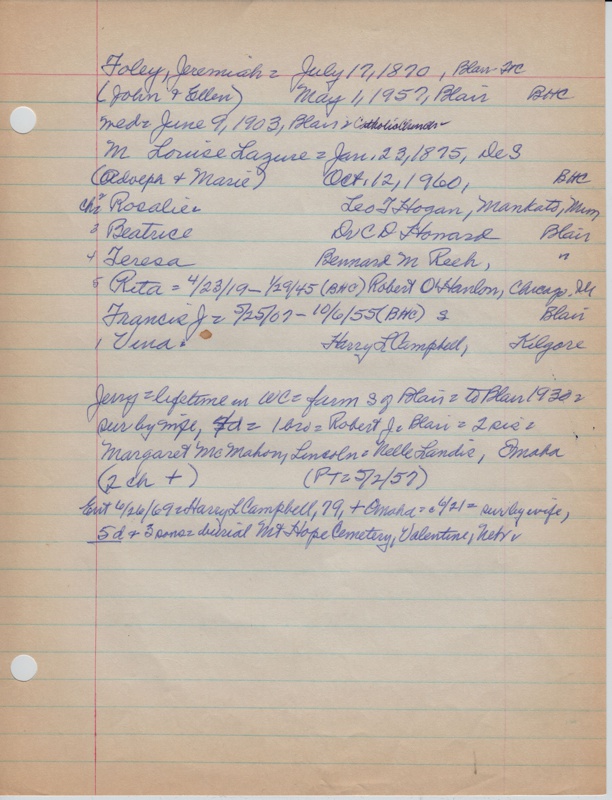 Foley, Jeremiah = July 17, 1870, Blair
(John & Ellen) May 1, 1957, Blair BHC
med = June 9, 1903, Blair =
M Louise Lazure = Jan. 23, 1875, De S
(Adolph & Marie) Oct. 12, 1960, BHC
ch 2 Rosalie = Leo F Hogan, Mankato, Minn
3 Beatrice Dr C D Howard Blair
4 Teresa Bernard M Reeh, "
5 Rita = 4/23/19 – 1/29/45 (BHC) Robert O'Hanlon, Chicago, Ill
Francis J = 5/25/07 – 10/6/55 (BHC) s Blair
1 Vena = Harry L Campbell, Kilgore
Jerry = lifetime in WC = farm S of Blair = to Blair 1930 =
sur by wife, 4d = 1 bro = Robert J = Blair = 2 sis =
Margaret McMahon, Lincoln = Nelle Landis, Omaha
(2 ch +) (PT = 5/2/57)
Ent 4/26/69 = Harry L Campbell, 79, + Omaha = 4/21 = sur by wife,
5d + 3 sons = burial Mt Hope Cemetery, Valentine, Nebr